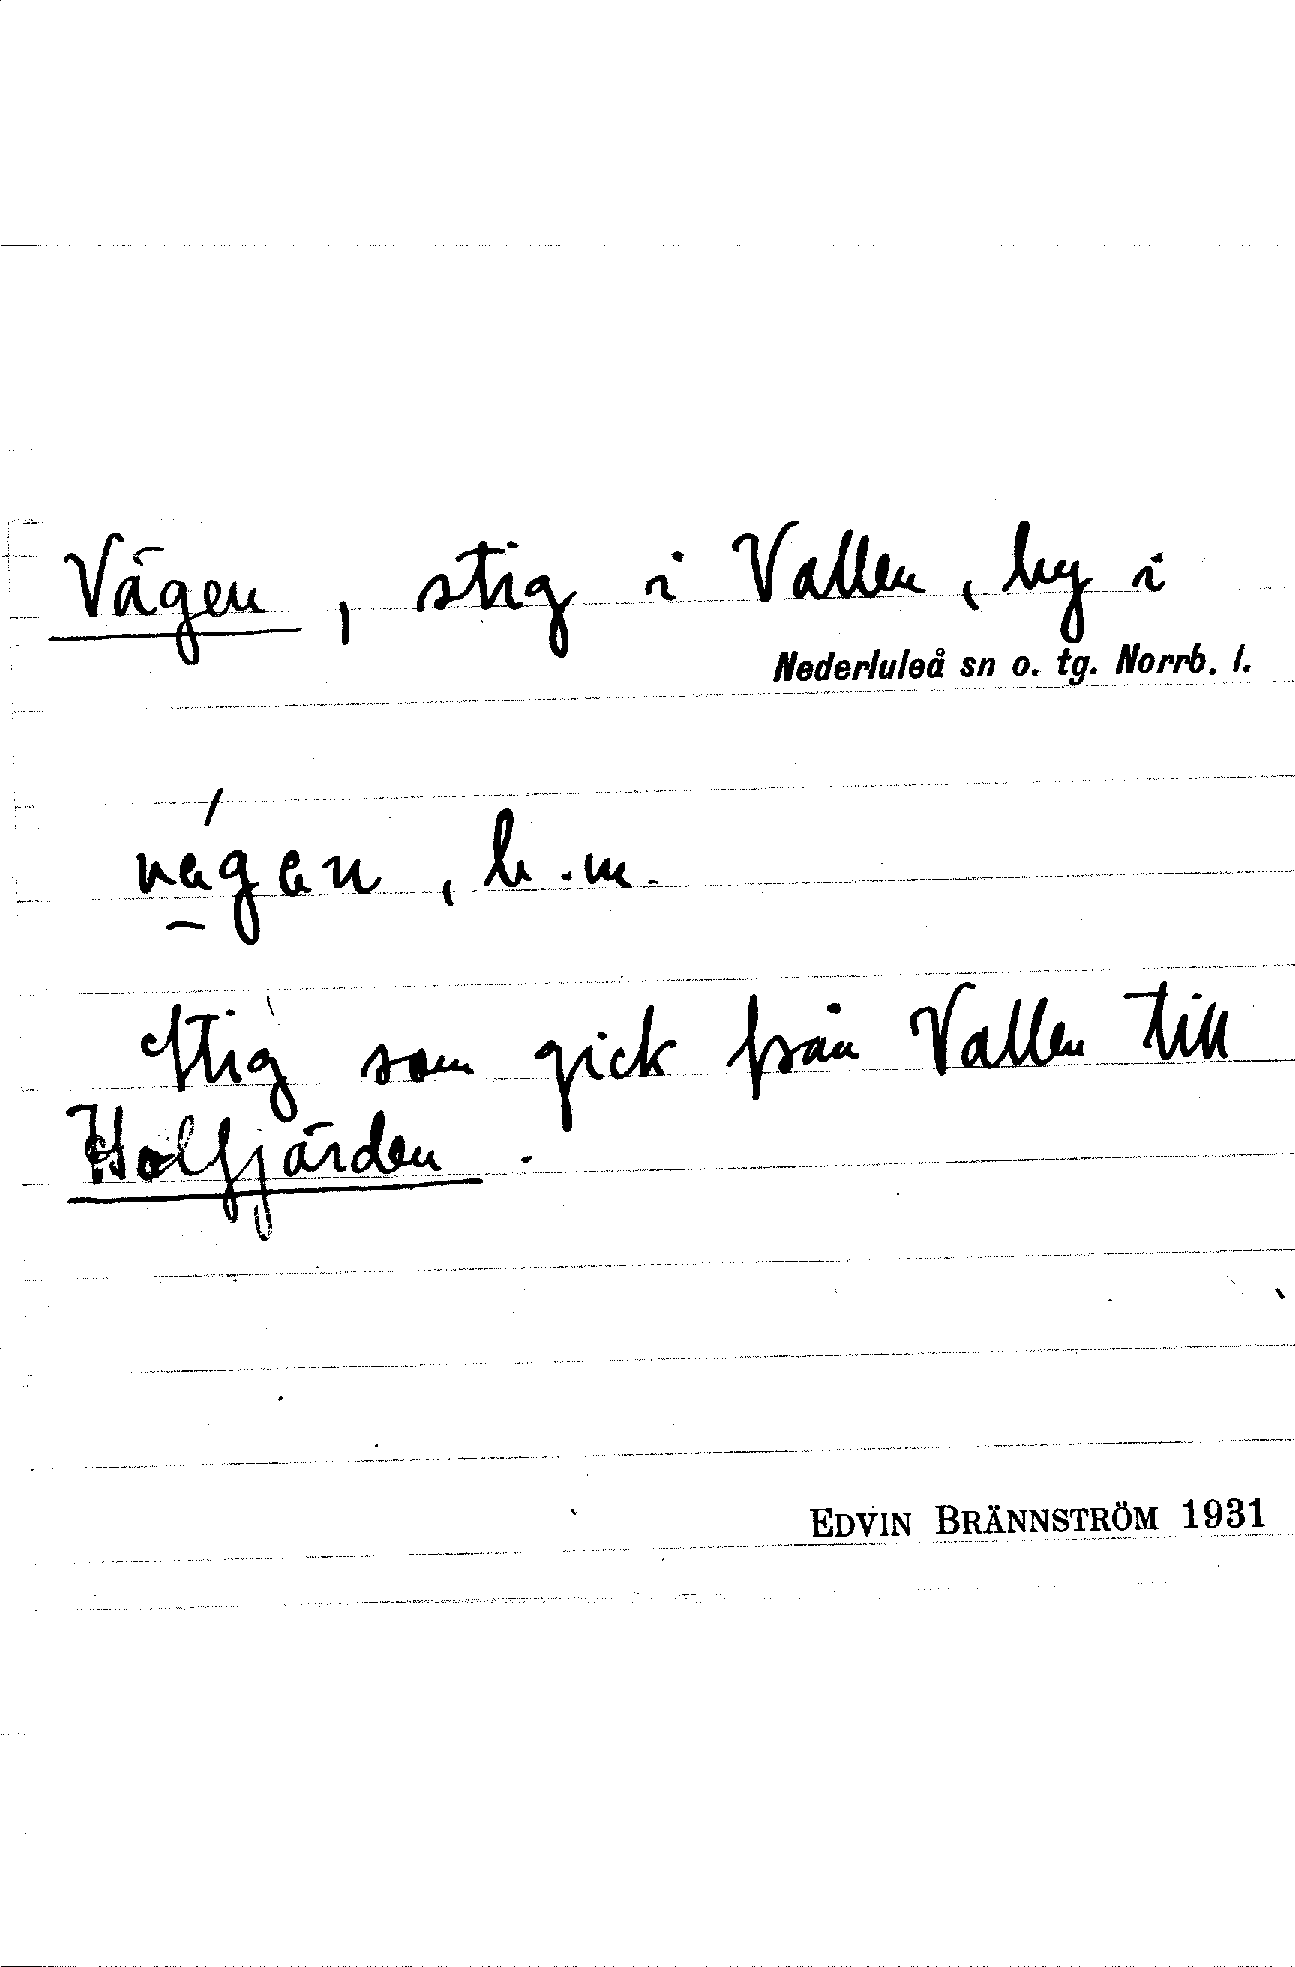 Vägen, stig i Vallen, by i
Nederluleå sn o. tg. Norrb. l.
vegen, b.m.
Stig som gick från Vallen till
Holfjärden.
EDVIN BRÄNNSTRÖM 1931